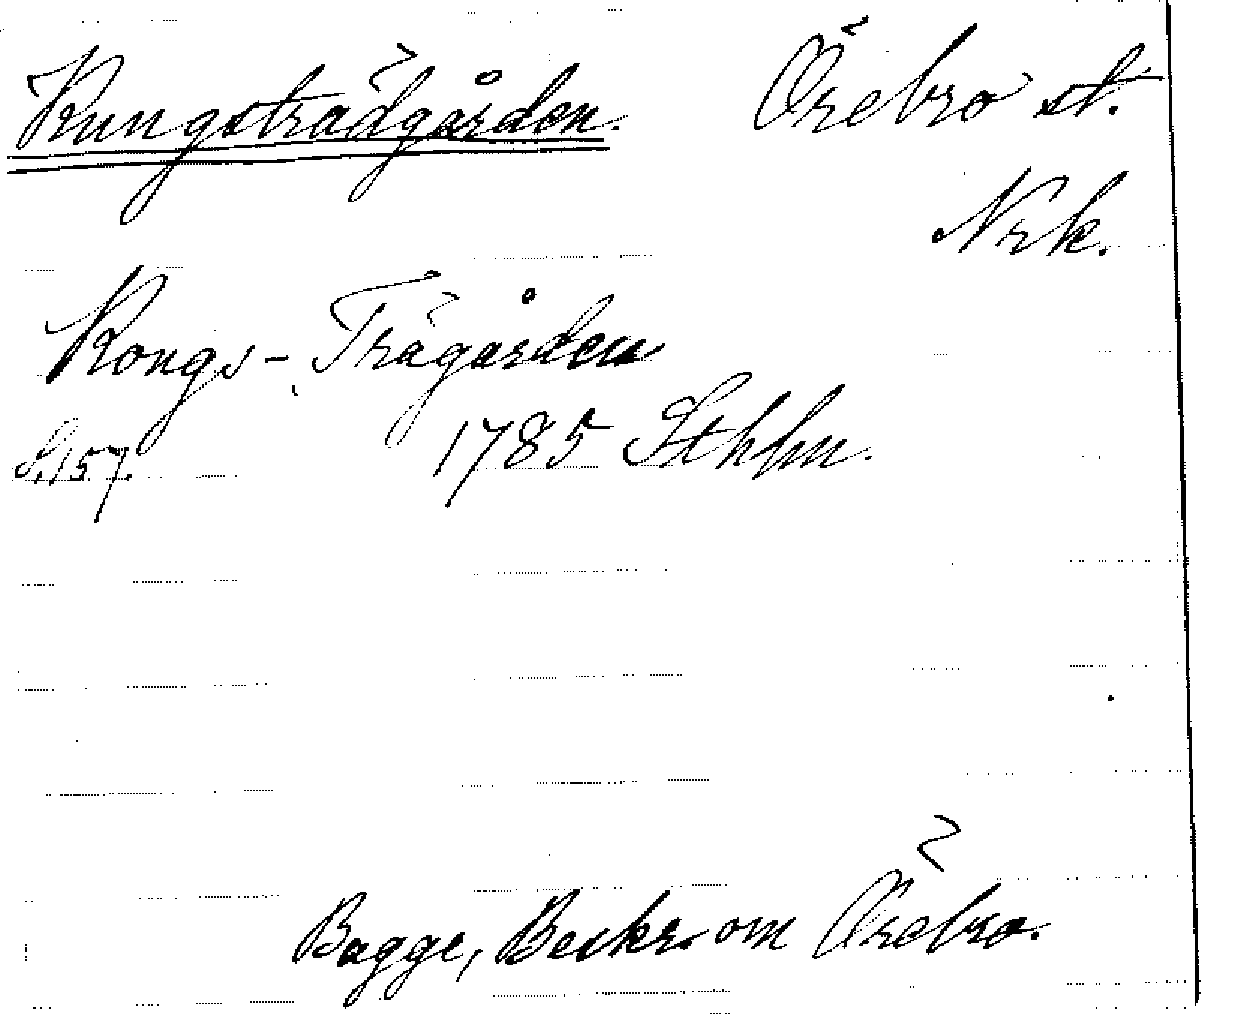 Kungsträdgården. Örebro st.
Nrk.
Kongs-Trägården
S. 157. 1785 Sthlm.
Bagge, Beskr. om Örebro.